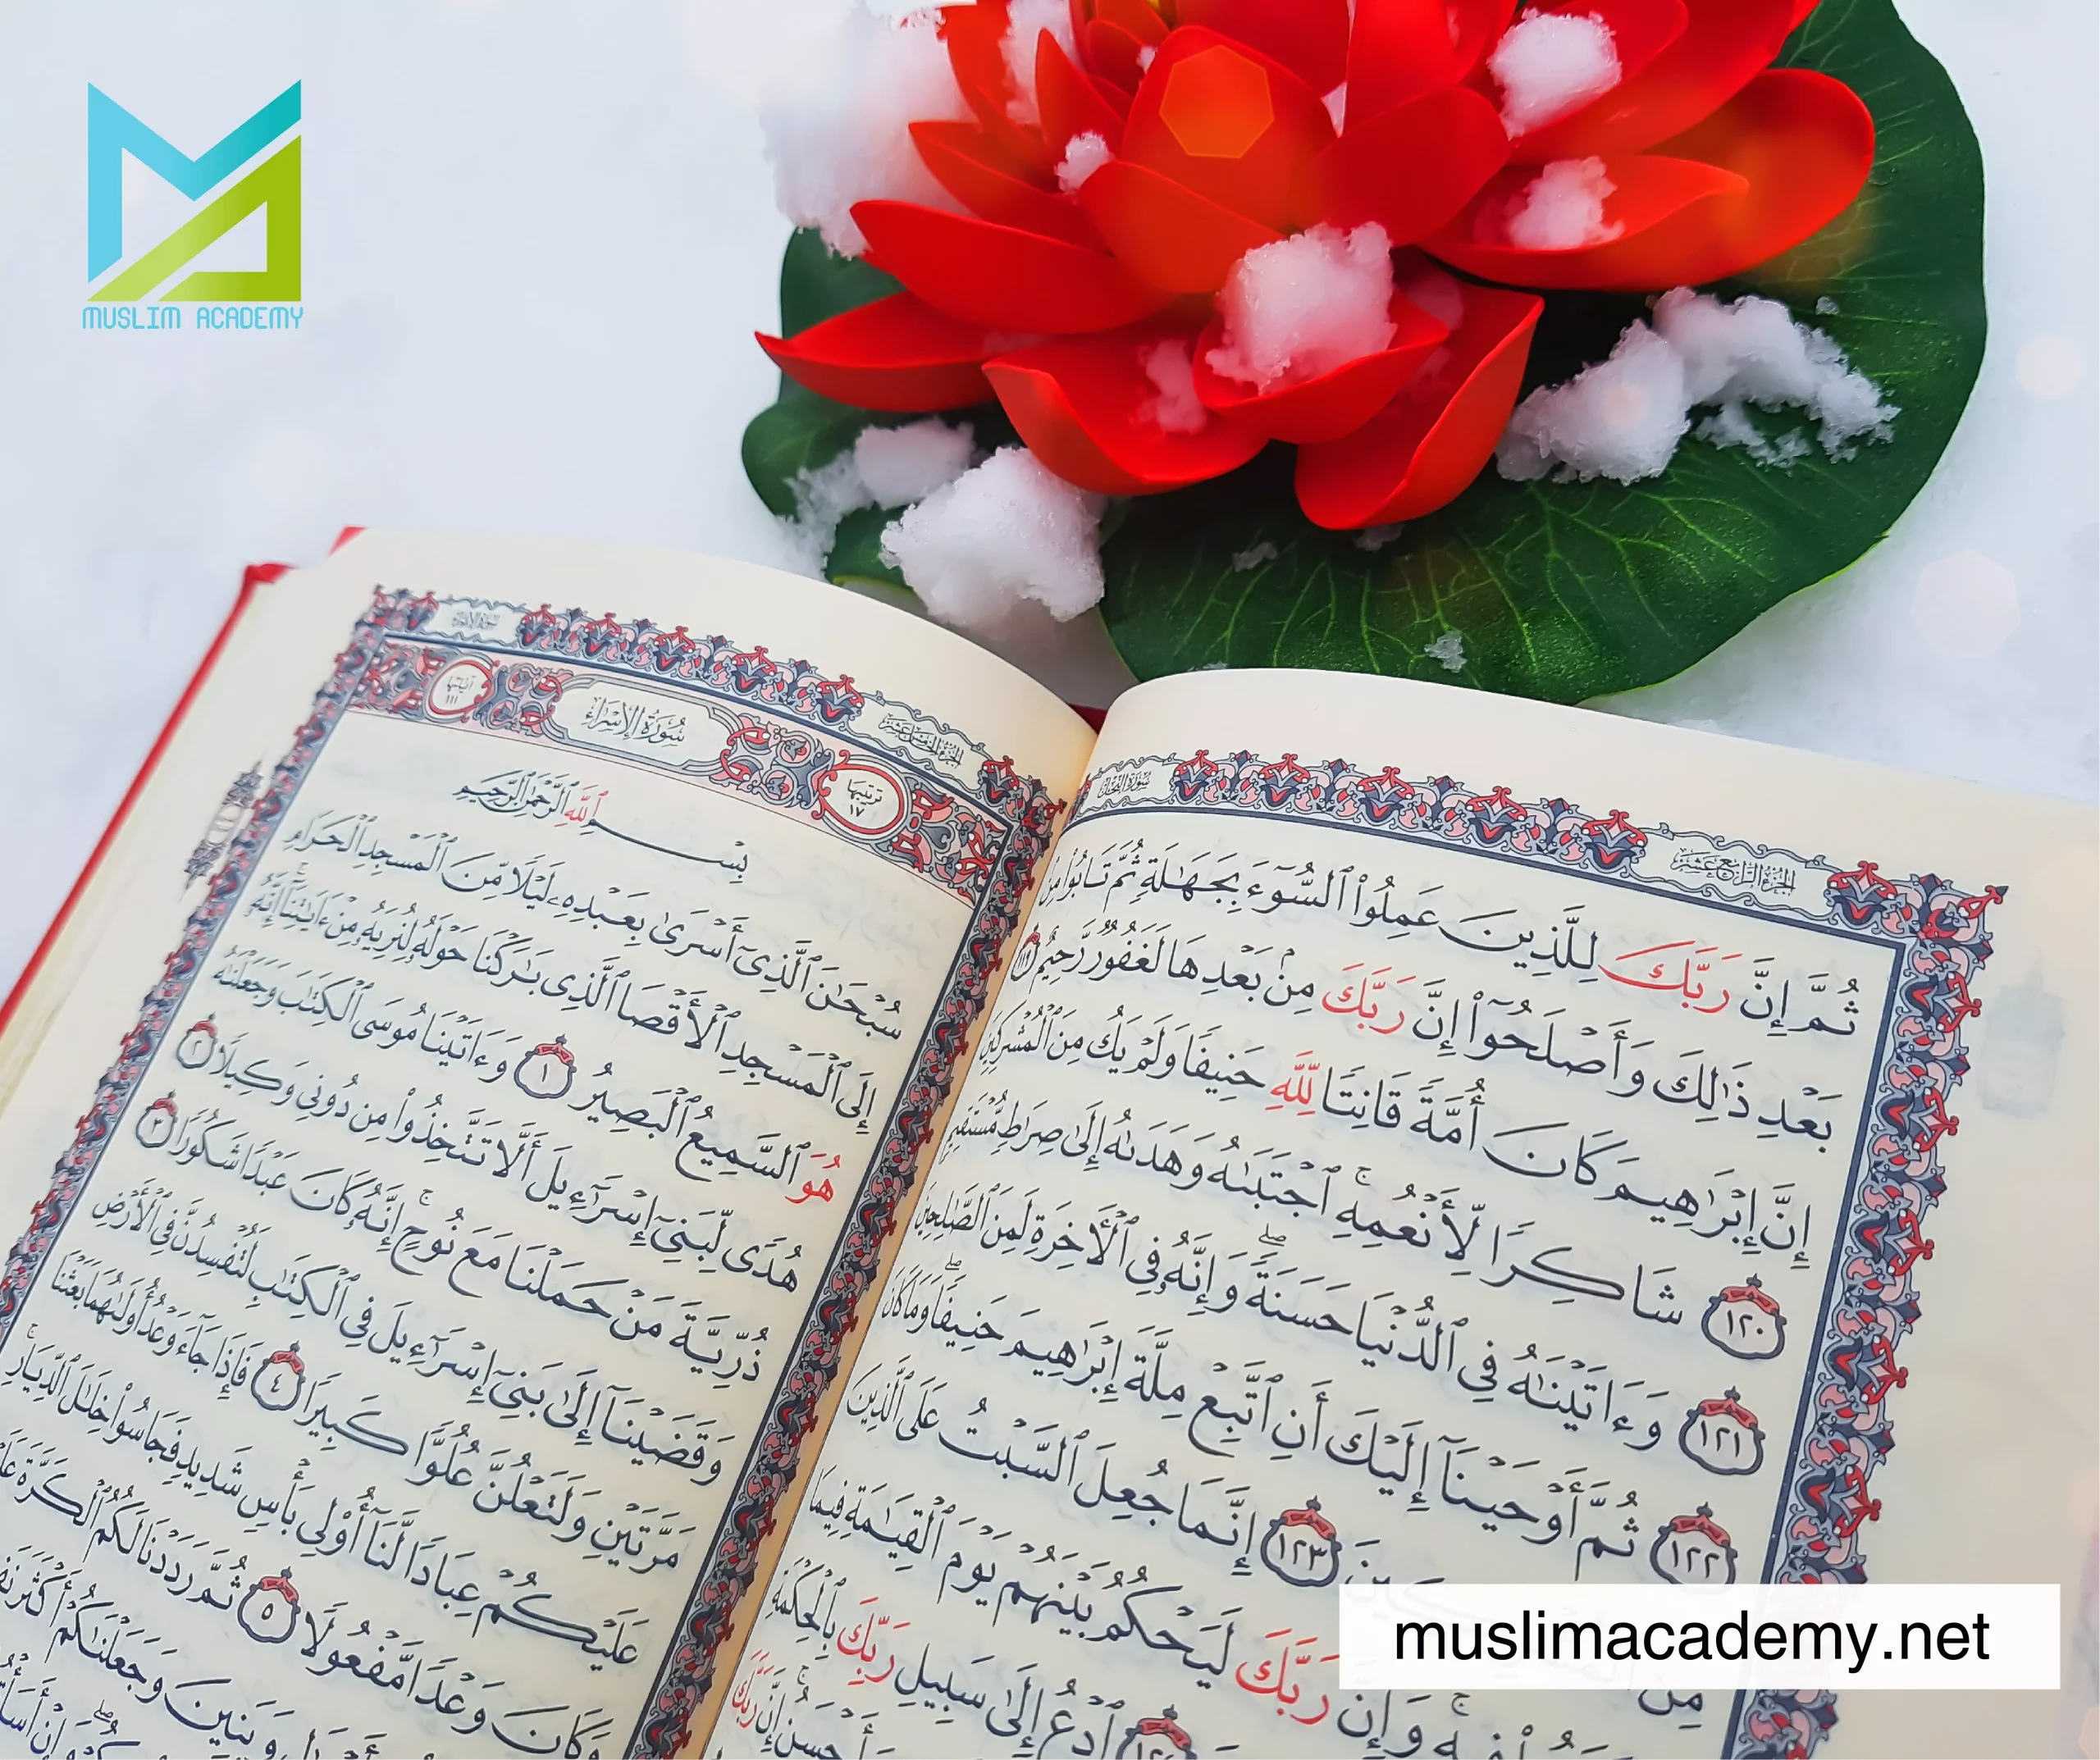 MUSLIM ACADEMY
سُورَةُ النَّحْلِ
الجُزْءُ الرَّابِعَ عَشَرَ
ثُمَّ إِنَّ رَبَّكَ لِلَّذِينَ عَمِلُوا۟ ٱلسُّوٓءَ بِجَهَٰلَةٍ ثُمَّ تَابُوا۟ مِنۢ
بَعْدِ ذَٰلِكَ وَأَصْلَحُوٓا۟ إِنَّ رَبَّكَ مِنۢ بَعْدِهَا لَغَفُورٌ رَّحِيمٌ ١١٩
إِنَّ إِبْرَٰهِيمَ كَانَ أُمَّةً قَانِتًا لِّلَّهِ حَنِيفًا وَلَمْ يَكُ مِنَ ٱلْمُشْرِكِينَ
١٢٠ شَاكِرًا لِّأَنْعُمِهِ ۚ ٱجْتَبَىٰهُ وَهَدَىٰهُ إِلَىٰ صِرَٰطٍ مُّسْتَقِيمٍ
١٢١ وَءَاتَيْنَٰهُ فِى ٱلدُّنْيَا حَسَنَةً ۖ وَإِنَّهُۥ فِى ٱلْءَاخِرَةِ لَمِنَ ٱلصَّٰلِحِينَ
١٢٢ ثُمَّ أَوْحَيْنَآ إِلَيْكَ أَنِ ٱتَّبِعْ مِلَّةَ إِبْرَٰهِيمَ حَنِيفًا ۖ وَمَا كَانَ
١٢٣ إِنَّمَا جُعِلَ ٱلسَّبْتُ عَلَى ٱلَّذِينَ
رَبَّكَ لَيَحْكُمُ بَيْنَهُمْ يَوْمَ ٱلْقِيَٰمَةِ فِيمَا
وَإِنَّ
ٱدْعُ إِلَىٰ سَبِيلِ رَبِّكَ بِٱلْحِكْمَةِ
أَحْسَنُ ۚ إِنَّ رَبَّكَ
سُورَةُ الإِسْرَاءِ
الجُزْءُ الخَامِسَ عَشَرَ
ترتيبها ١٧
سُورَةُ الإِسْرَاءِ
آياتها ١١١
بِسْمِ ٱللَّهِ ٱلرَّحْمَٰنِ ٱلرَّحِيمِ
سُبْحَٰنَ ٱلَّذِىٓ أَسْرَىٰ بِعَبْدِهِۦ لَيْلًا مِّنَ ٱلْمَسْجِدِ ٱلْحَرَامِ
إِلَى ٱلْمَسْجِدِ ٱلْأَقْصَا ٱلَّذِى بَٰرَكْنَا حَوْلَهُۥ لِنُرِيَهُۥ مِنْ ءَايَٰتِنَآ ۚ إِنَّهُۥ
هُوَ ٱلسَّمِيعُ ٱلْبَصِيرُ ١ وَءَاتَيْنَا مُوسَى ٱلْكِتَٰبَ وَجَعَلْنَٰهُ
هُدًى لِّبَنِىٓ إِسْرَٰٓءِيلَ أَلَّا تَتَّخِذُوا۟ مِن دُونِى وَكِيلًا ٢
ذُرِّيَّةَ مَنْ حَمَلْنَا مَعَ نُوحٍ ۚ إِنَّهُۥ كَانَ عَبْدًا شَكُورًا ٣
وَقَضَيْنَآ إِلَىٰ بَنِىٓ إِسْرَٰٓءِيلَ فِى ٱلْكِتَٰبِ لَتُفْسِدُنَّ فِى ٱلْأَرْضِ
مَرَّتَيْنِ وَلَتَعْلُنَّ عُلُوًّا كَبِيرًا ٤ فَإِذَا جَآءَ وَعْدُ أُولَىٰهُمَا بَعَثْنَا
عَلَيْكُمْ عِبَادًا لَّنَآ أُو۟لِى بَأْسٍ شَدِيدٍ فَجَاسُوا۟ خِلَٰلَ ٱلدِّيَارِ ۚ
وَكَانَ وَعْدًا مَّفْعُولًا ٥ ثُمَّ رَدَدْنَا لَكُمُ ٱلْكَرَّةَ
وَبَنِينَ وَجَعَلْنَٰكُمْ أَكْثَرَ
muslimacademy.net